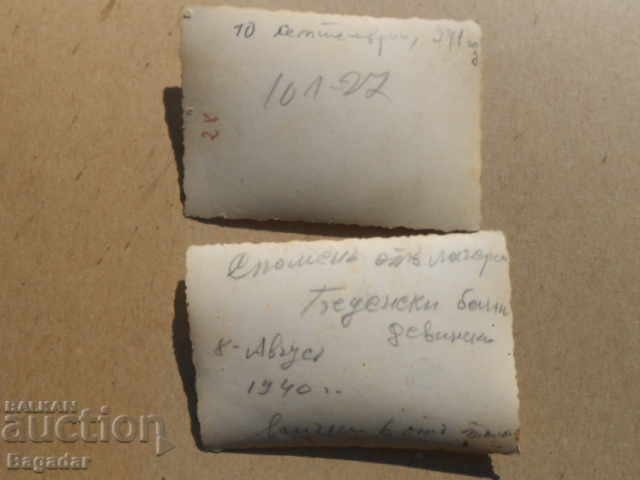 10 Септемврий, 941 год
101-27
2x
Споменъ отъ лагера
Беденски бани
девинско
8-Август
1940 г.
всички отъ
BALKAN
auction
Bagadar